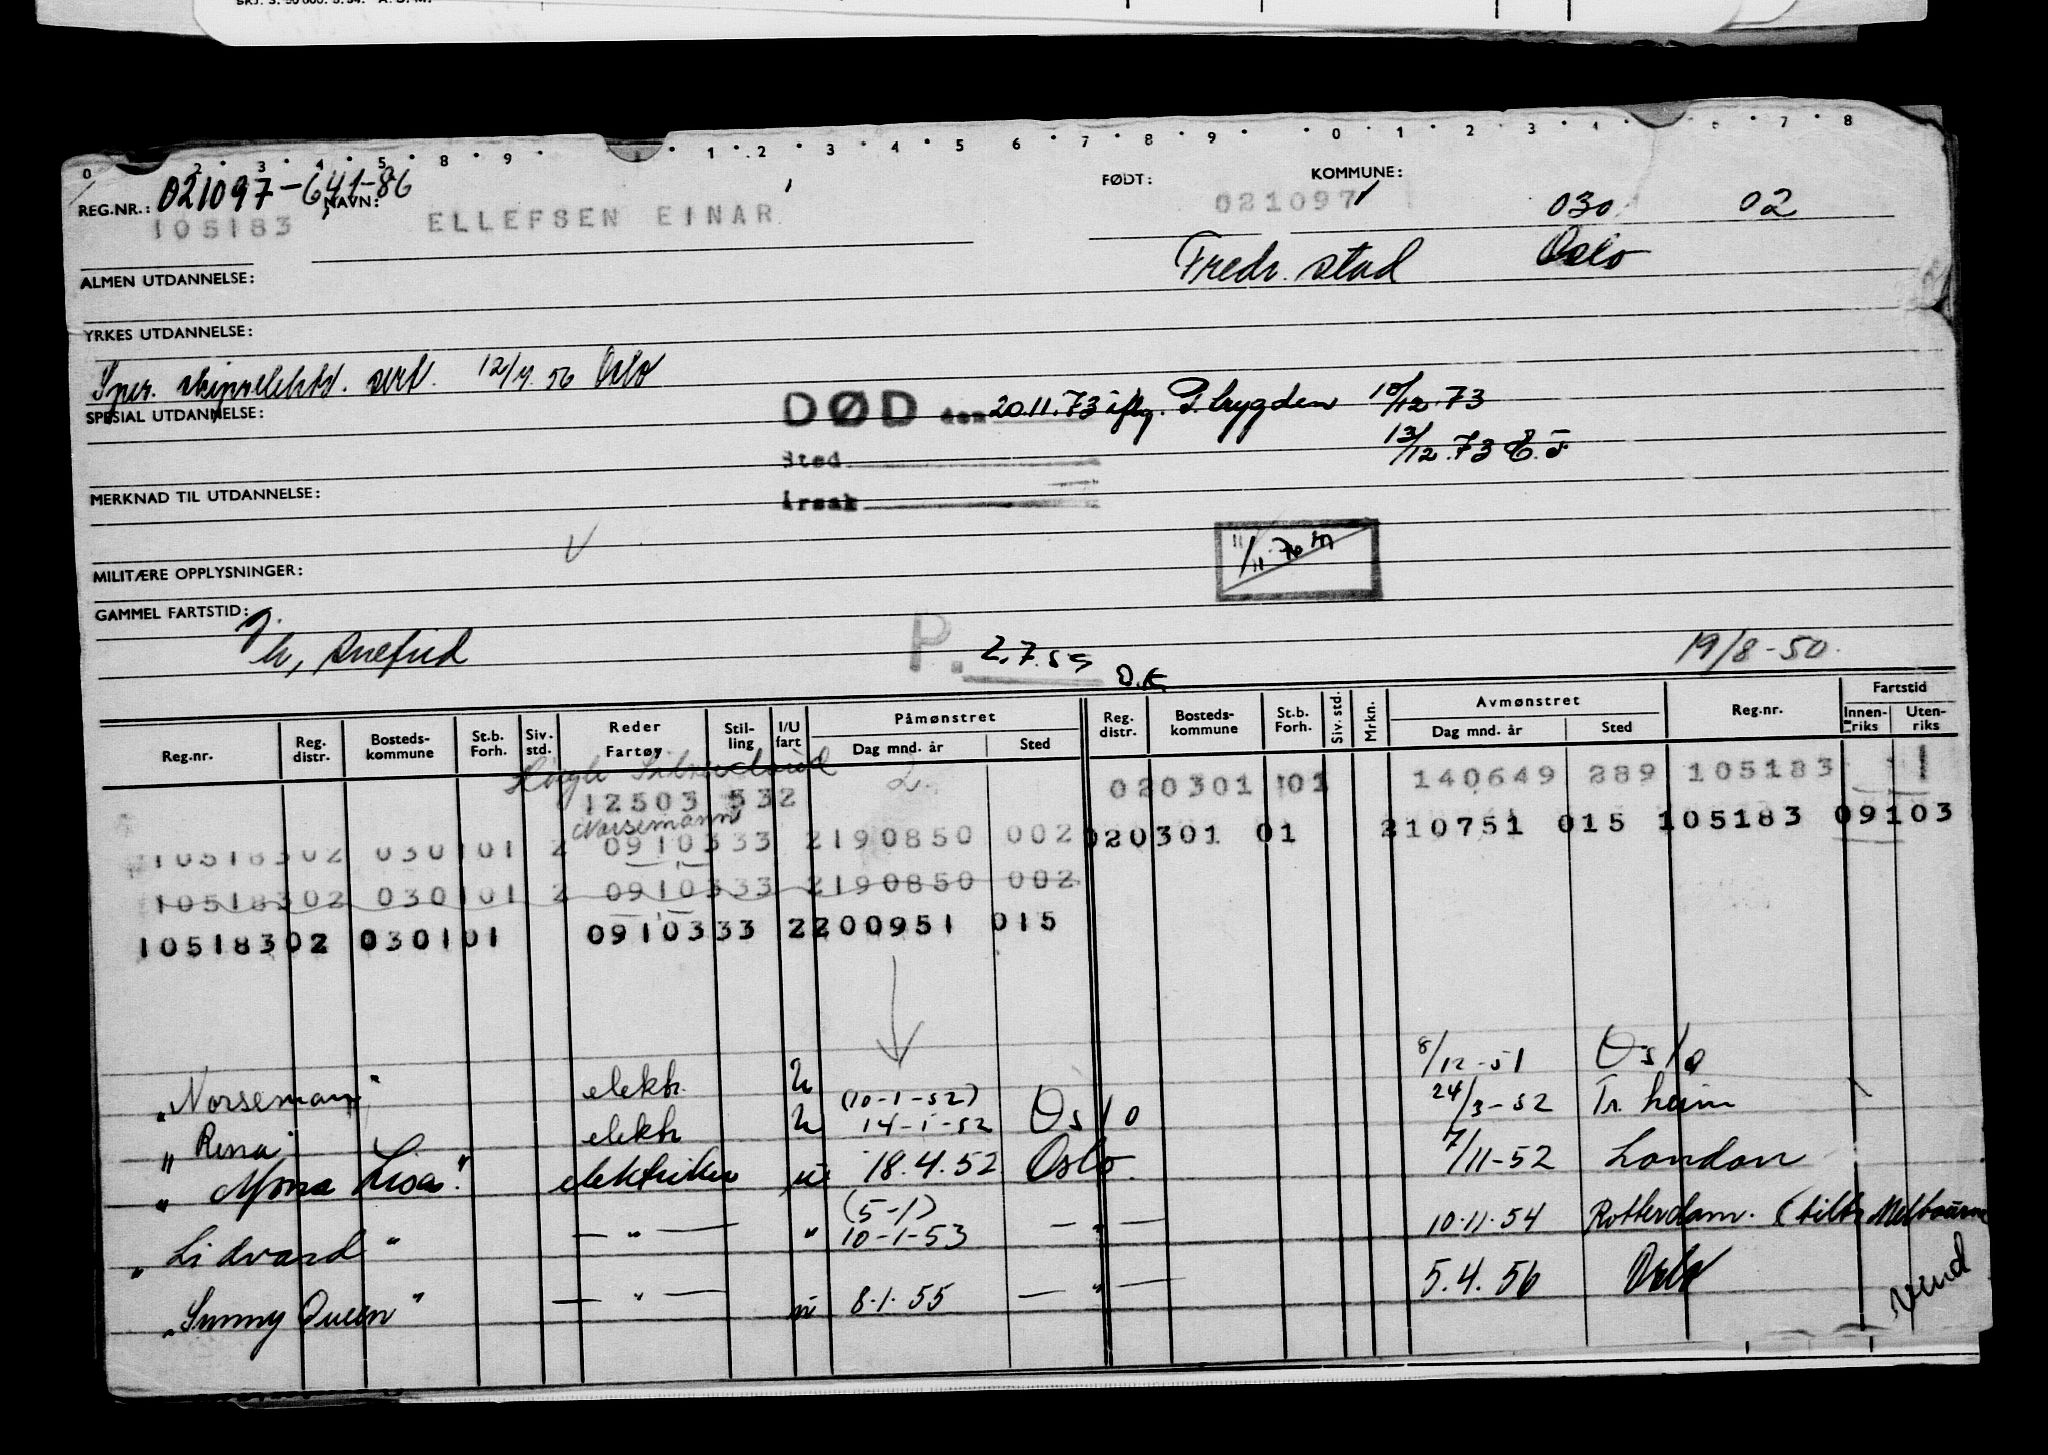 0 2 3 4 5 8 9 1 2 3 4 5 6 7 8 9 0 1 2 3 4 6 7 8
REG.NR.: 021097-641-86 NAVN: FØDT: KOMMUNE:
105183 ELLEFSEN EINAR 021097 030 02
Fredr. stad Oslo
ALMEN UTDANNELSE:
YRKES UTDANNELSE:
12/4.56 Oslo
SPESIAL UTDANNELSE:
DØD den 20.11.73 iflg. P. trygden 10/12.73
Sted 13/12.73 E.F
MERKNAD TIL UTDANNELSE:
Årsak
11/11.70
MILITÆRE OPPLYSNINGER:
GAMMEL FARTSTID:
P. 2.7.55 19/8-50.
O.K
Reg.nr. Reg. distr. Bosteds-kommune St.b. Forh. Siv. std. Reder Fartøy Stil-ling I/U fart Påmønstret Dag mnd. år Sted Reg. distr. Bosteds-kommune St.b. Forh. Siv. std. Mrkn. Avmønstret Dag mnd. år Sted Reg.nr. Fartstid Innen-riks Uten-riks
12503 532 2. 020301 01 140649 289 105183 1
Norsemann
10518302 030101 2 0910333 2190850 002 020301 01 210751 015 105183 09103
10518302 030101 2 0910333 2190850 002
10518302 030101 0910333 2200951 015
"Norseman" elektr. U 8/12-51 Oslo
(10-1-52)
"Rena" elektr U 14-1-52 Oslo 24/3-52 Tr. heim
"Mona Lisa". elektriker u 18.4.52 Oslo. 7/11-52 London
(5-1)
"Lidvard" — " — " 10-1-53 — " — 10.11.54 Rotterdam. (tiltr Melbourne
"Sunny Queen" — " — u 8.1.55 — " — 5.4.56 Oslo
vend